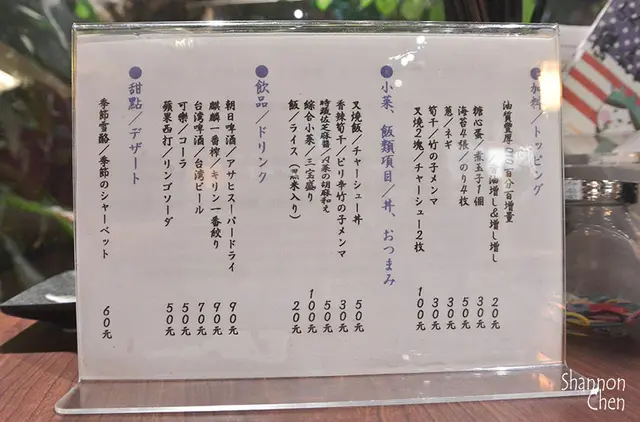 加料／トッピング
油質豐厚
百分百增量
油増し&増し増し
20元
糖心蛋／煮玉子1個
30元
海苔4張／のり4枚
50元
蔥／ネギ
30元
筍干／竹の子メンマ
30元
叉燒2塊／チャーシュー2枚
100元
小菜、飯類項目／丼、おつまみ
叉燒飯／チャーシュー丼
50元
香辣筍干／ピリ辛竹の子メンマ
30元
時蔬佐芝麻醬／の胡麻和え
50元
綜合小菜／三宝盛り
100元
飯／ライス（米入り）
20元
飲品／ドリンク
朝日啤酒／アサヒスーパードライ
90元
麒麟一番搾／キリン一番搾り
90元
台湾啤酒／台湾ビール
70元
可樂／コーラ
50元
蘋果西打／リンゴソーダ
50元
甜點／デザート
季節雪酪／季節のシャーベット
60元
Shannon
Chen